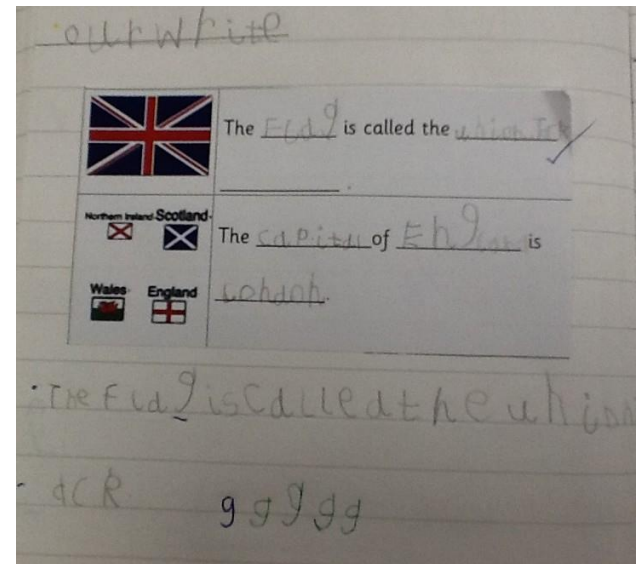 our write
The Flag is called the union Jck
Northern Ireland Scotland
The capital of England is
Wales England
London.
The Flag is called the union
dck
g g g g g